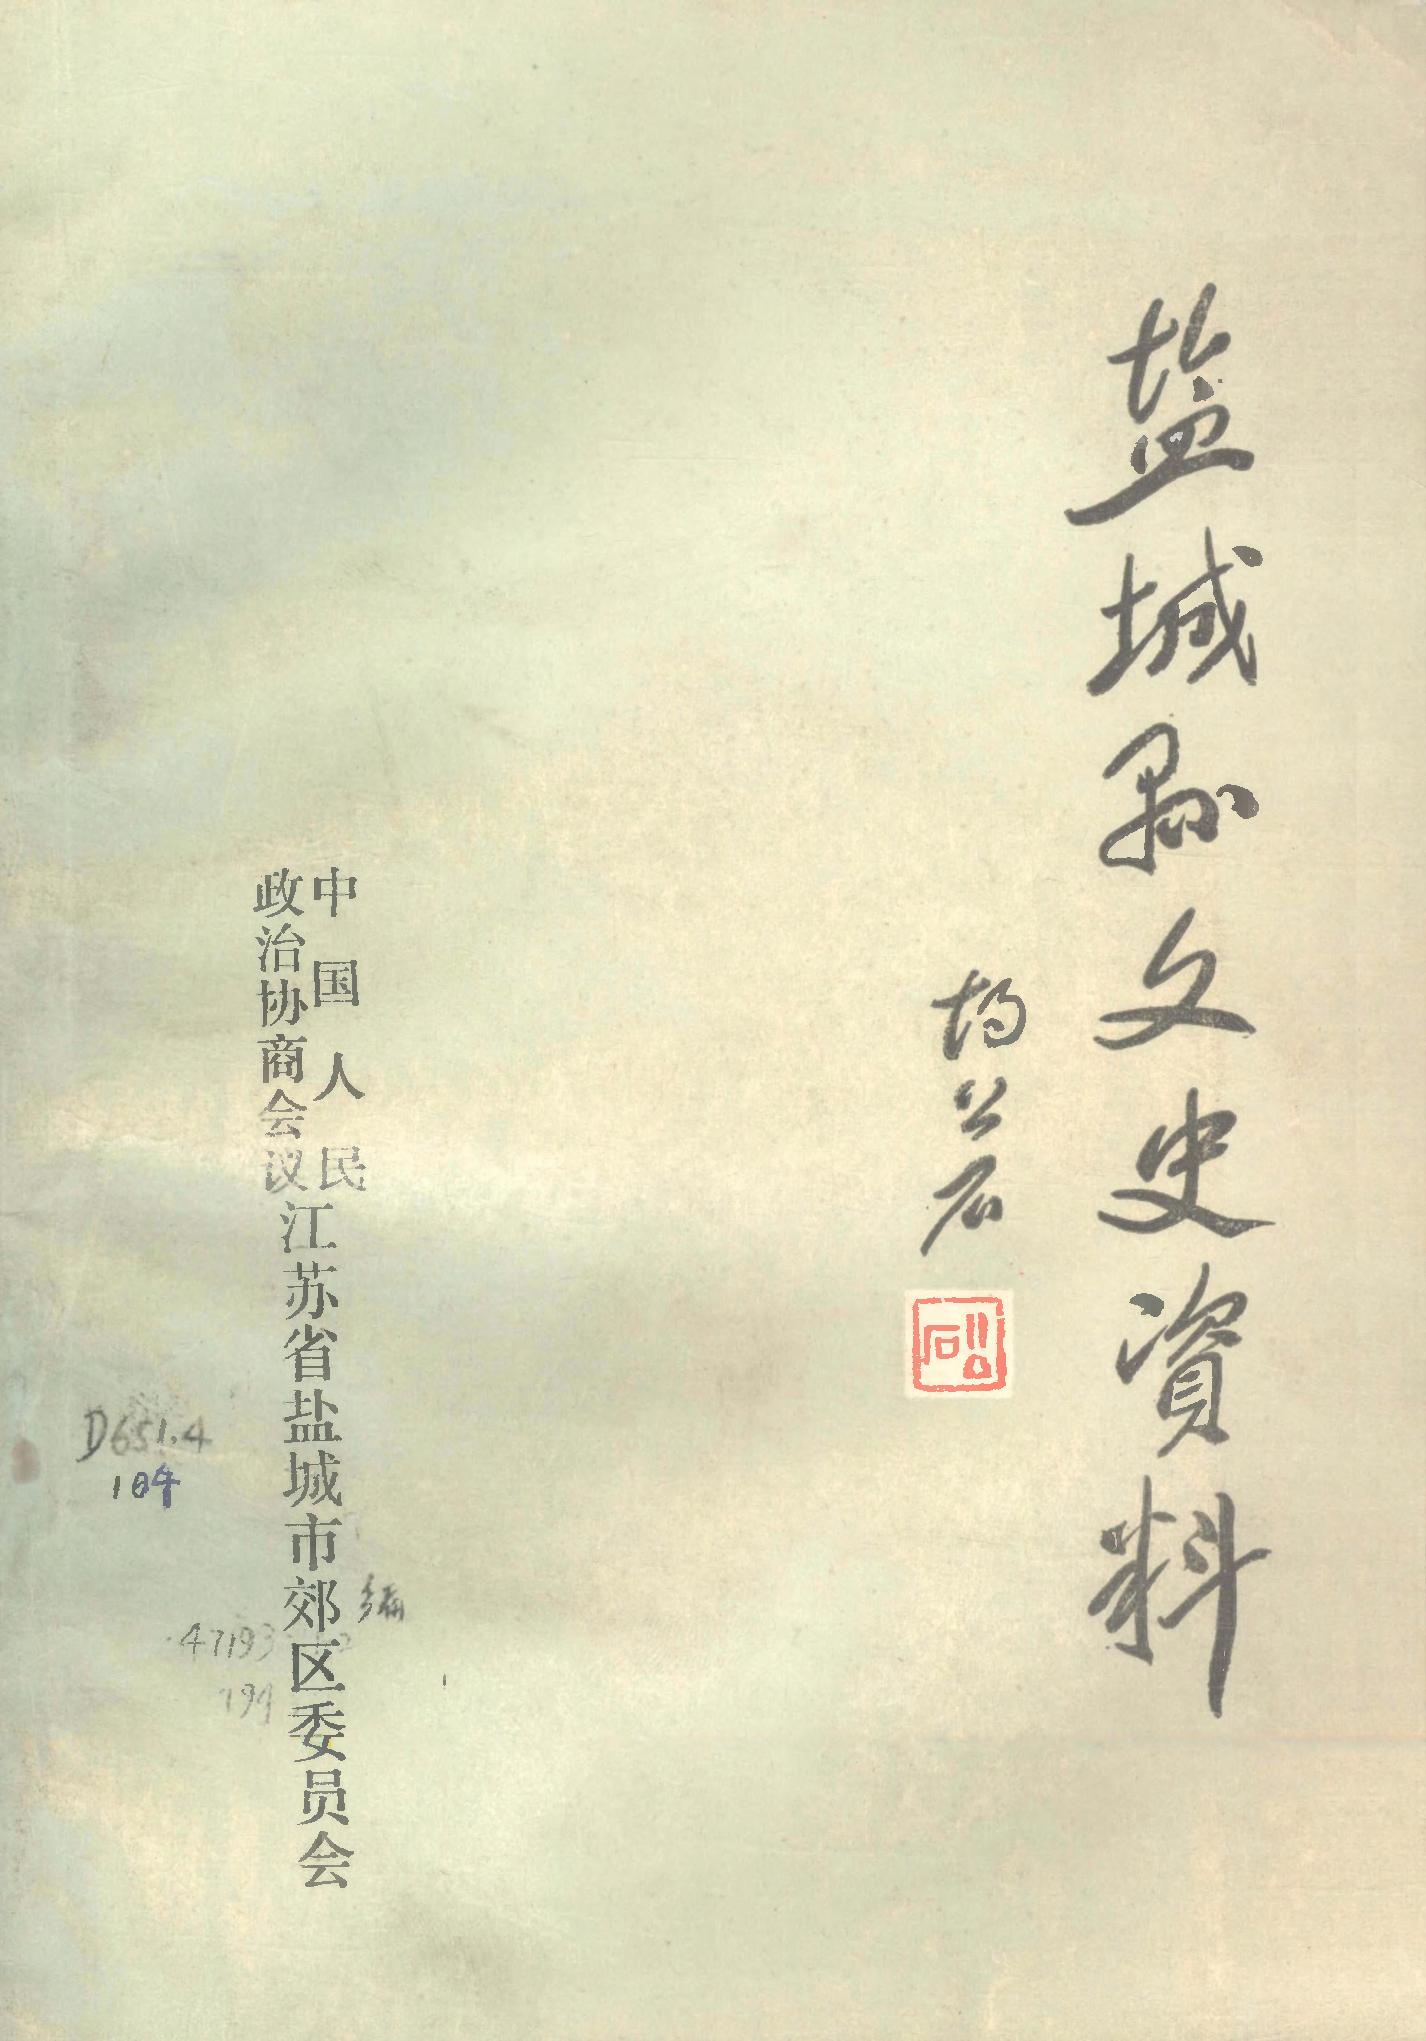 盐城县文史資料
胡公石
公石
中国人民
政治协商会议
江苏省盐城市郊区委员会
编
D651.4
104
47193
194